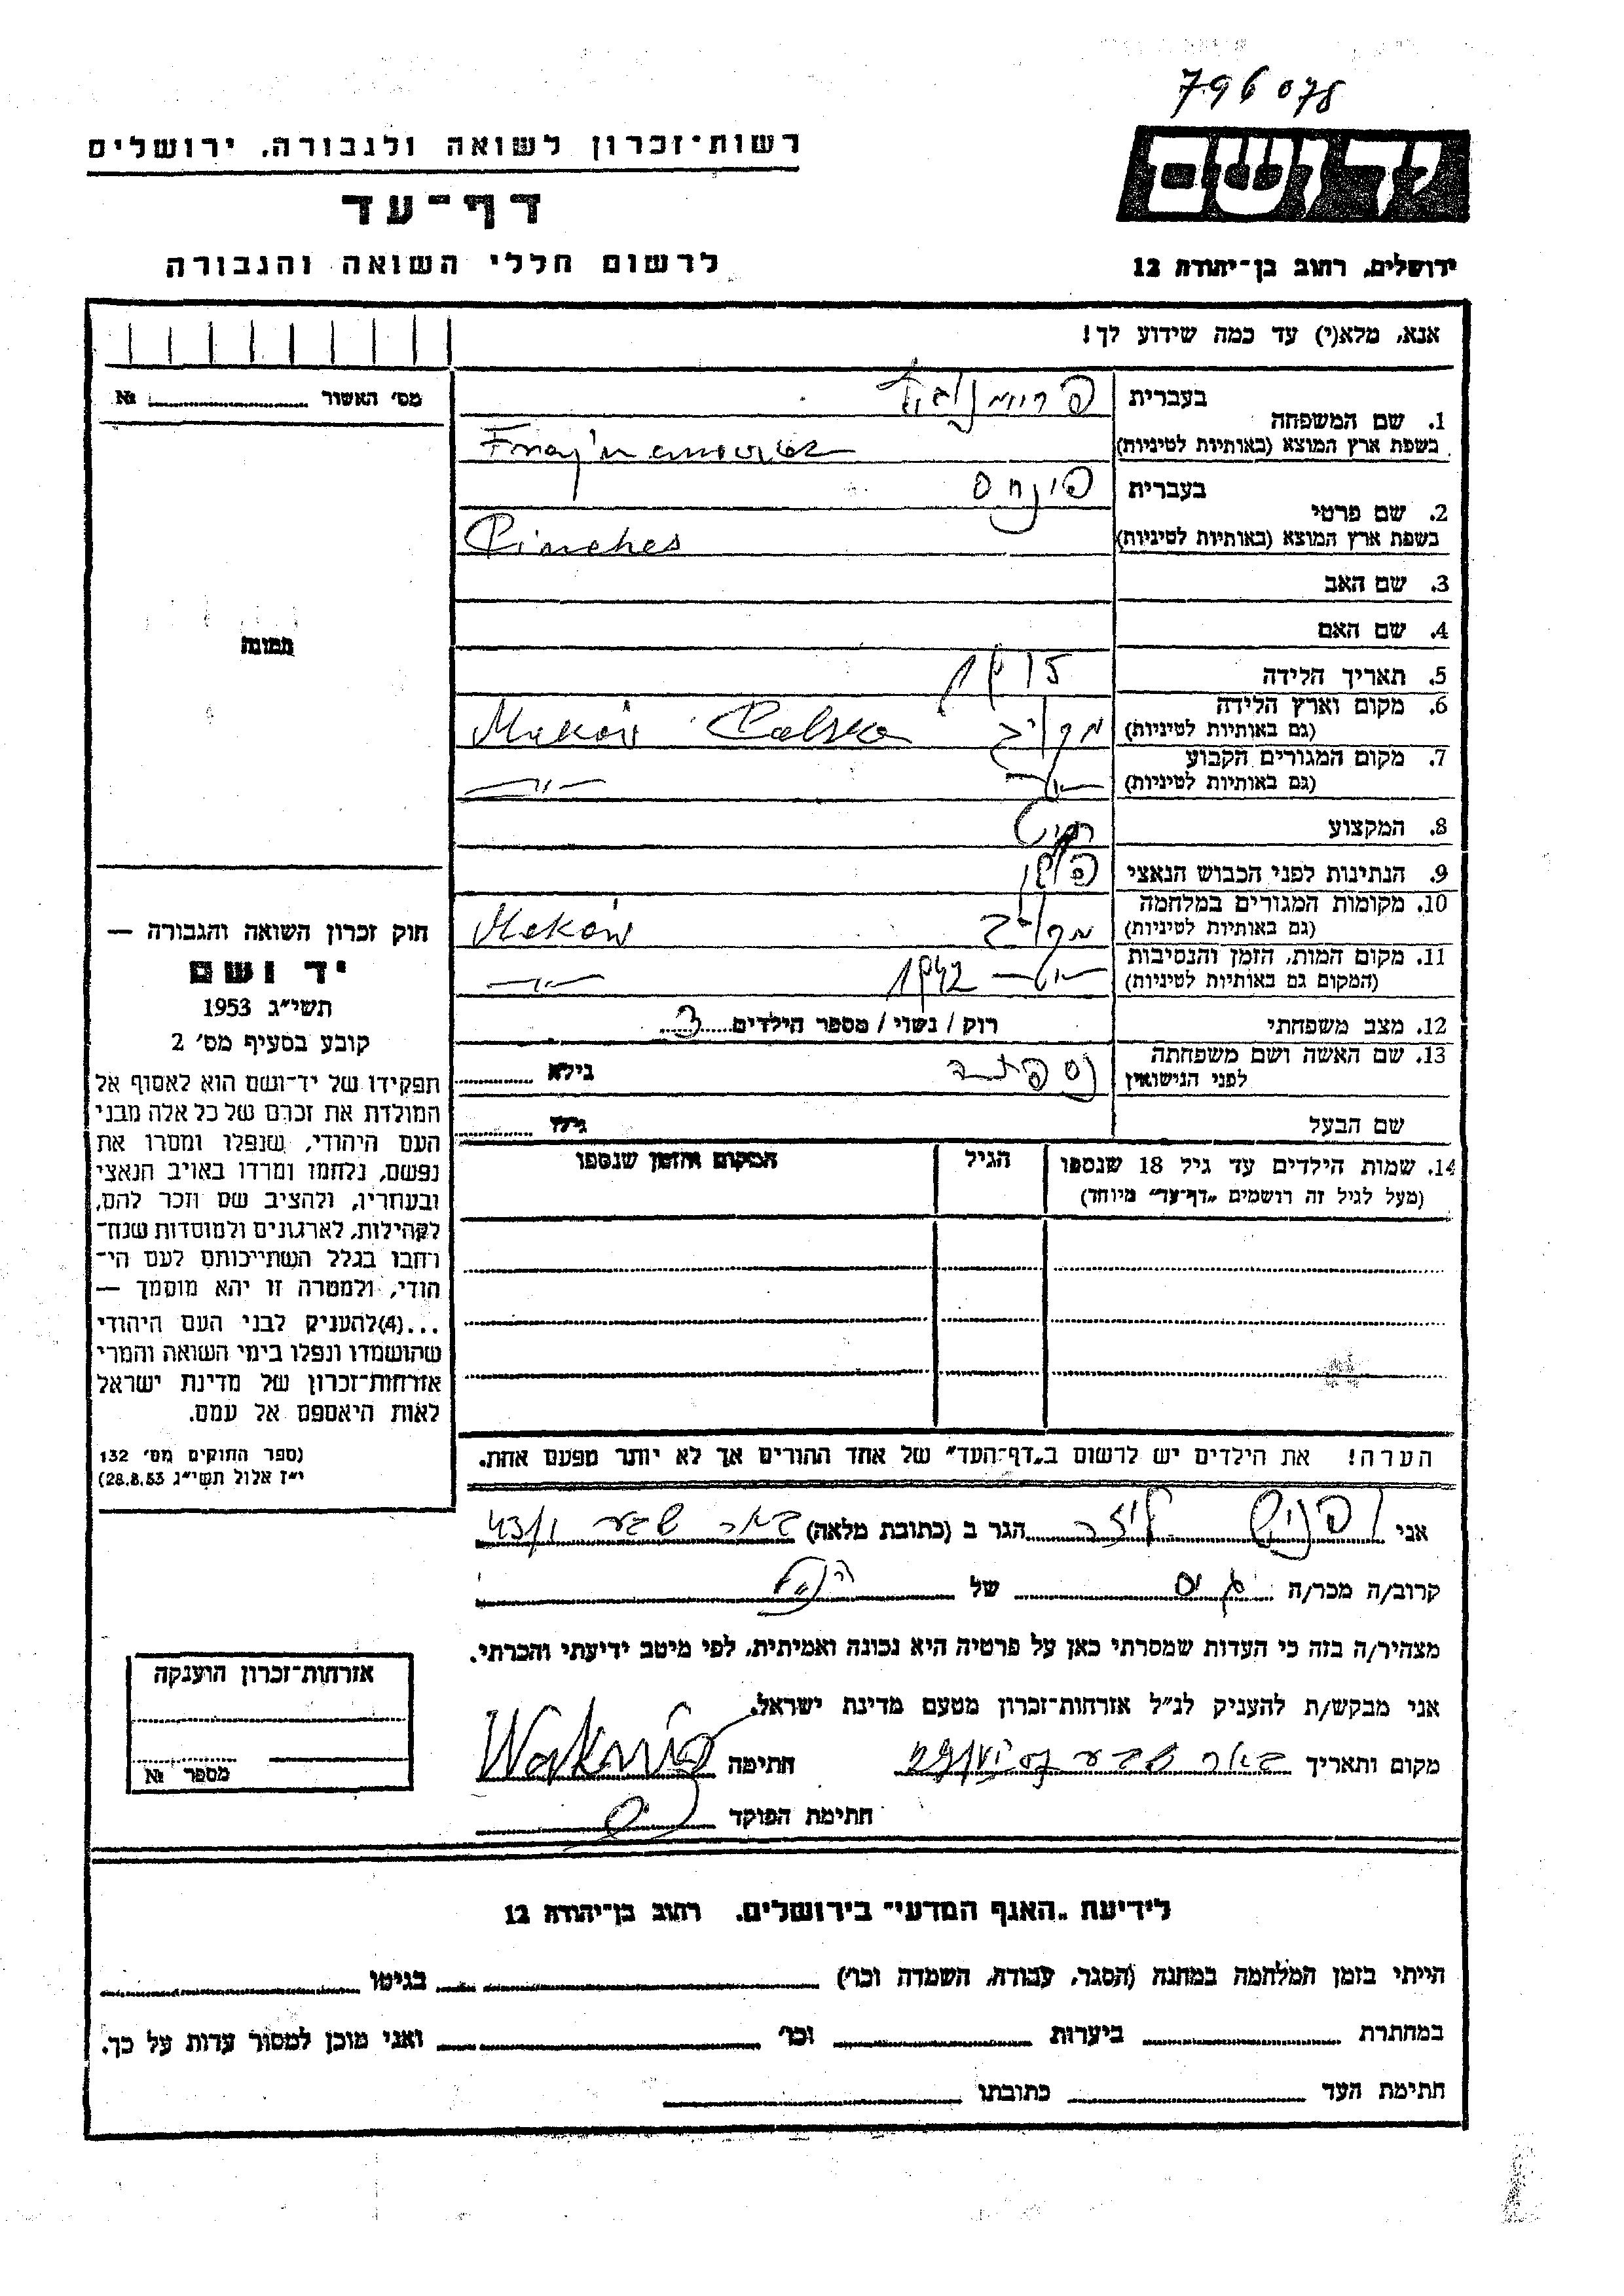 796078
רשות־זכרון לשואה ולגבורה, ירושלים
יד ושם
דף־עד
לרשום חללי השואה והגבורה
ירושלים, רחוב בן־יהודה 12
אנא, מלא(י) עד כמה שידוע לך!
מס' האשור № 
1. שם המשפחה
בעברית
בשפת ארץ המוצא (באותיות לטיניות)
2. שם פרטי
בעברית פינחס
בשפת ארץ המוצא (באותיות לטיניות) Pinches
3. שם האב
4. שם האם
תמונה
5. תאריך הלידה
6. מקום וארץ הלידה
(גם באותיות לטיניות) מקוב Makow Polska
7. מקום המגורים הקבוע
(גם באותיות לטיניות)
8. המקצוע
9. הנתינות לפני הכבוש הנאצי
10. מקומות המגורים במלחמה
(גם באותיות לטיניות) Makow
11. מקום המות, הזמן והנסיבות
(המקום גם באותיות לטיניות) 1942
12. מצב משפחתי רוק / נשוי / מספר הילדים 3
13. שם האשה ושם משפחתה
לפני הנישואין נספתה גילא
שם הבעל גילו
14. שמות הילדים עד גיל 18 שנספו
(מעל לגיל זה רושמים „דף־עד" מיוחד)
הגיל
המקום והזמן שנספו
חוק זכרון השואה והגבורה —
יד ושם
תשי"ג 1953
קובע בסעיף מס' 2
תפקידו של יד־ושם הוא לאסוף אל
המולדת את זכרם של כל אלה מבני
העם היהודי, שנפלו ומסרו את
נפשם, נלחמו ומרדו באויב הנאצי
ובעוזריו, ולהציב שם וזכר להם,
לקהילות, לארגונים ולמוסדות שנח־
רבו בגלל השתייכותם לעם הי־
הודי, ולמטרה זו יהא מוסמך —
...(4)להעניק לבני העם היהודי
שהושמדו ונפלו בימי השואה והמרי
אזרחות־זכרון של מדינת ישראל
לאות היאספם אל עמם.
(ספר החוקים מס' 132
י"ז אלול תשי"ג 28.8.53)
הערה! את הילדים יש לרשום ב„דף־העד" של אחד ההורים אך לא יותר מפעם אחת.
אני הגר ב (כתובת מלאה) באר שבע
קרוב/ה מכר/ה גיס של
מצהיר/ה בזה כי העדות שמסרתי כאן על פרטיה היא נכונה ואמיתית, לפי מיטב ידיעתי והכרתי.
אני מבקש/ת להעניק לנ"ל אזרחות־זכרון מטעם מדינת ישראל.
מקום ותאריך באר שבע חתימה
חתימת הפוקד
אזרחות־זכרון הוענקה
מספר №
לידיעת „האגף המדעי" בירושלים, רחוב בן־יהודה 12
הייתי בזמן המלחמה במחנה (הסגר, עבודה, השמדה וכו') בגיטו
במחתרת ביערות וכו' ואני מוכן למסור עדות על כך.
חתימת העד כתובתו